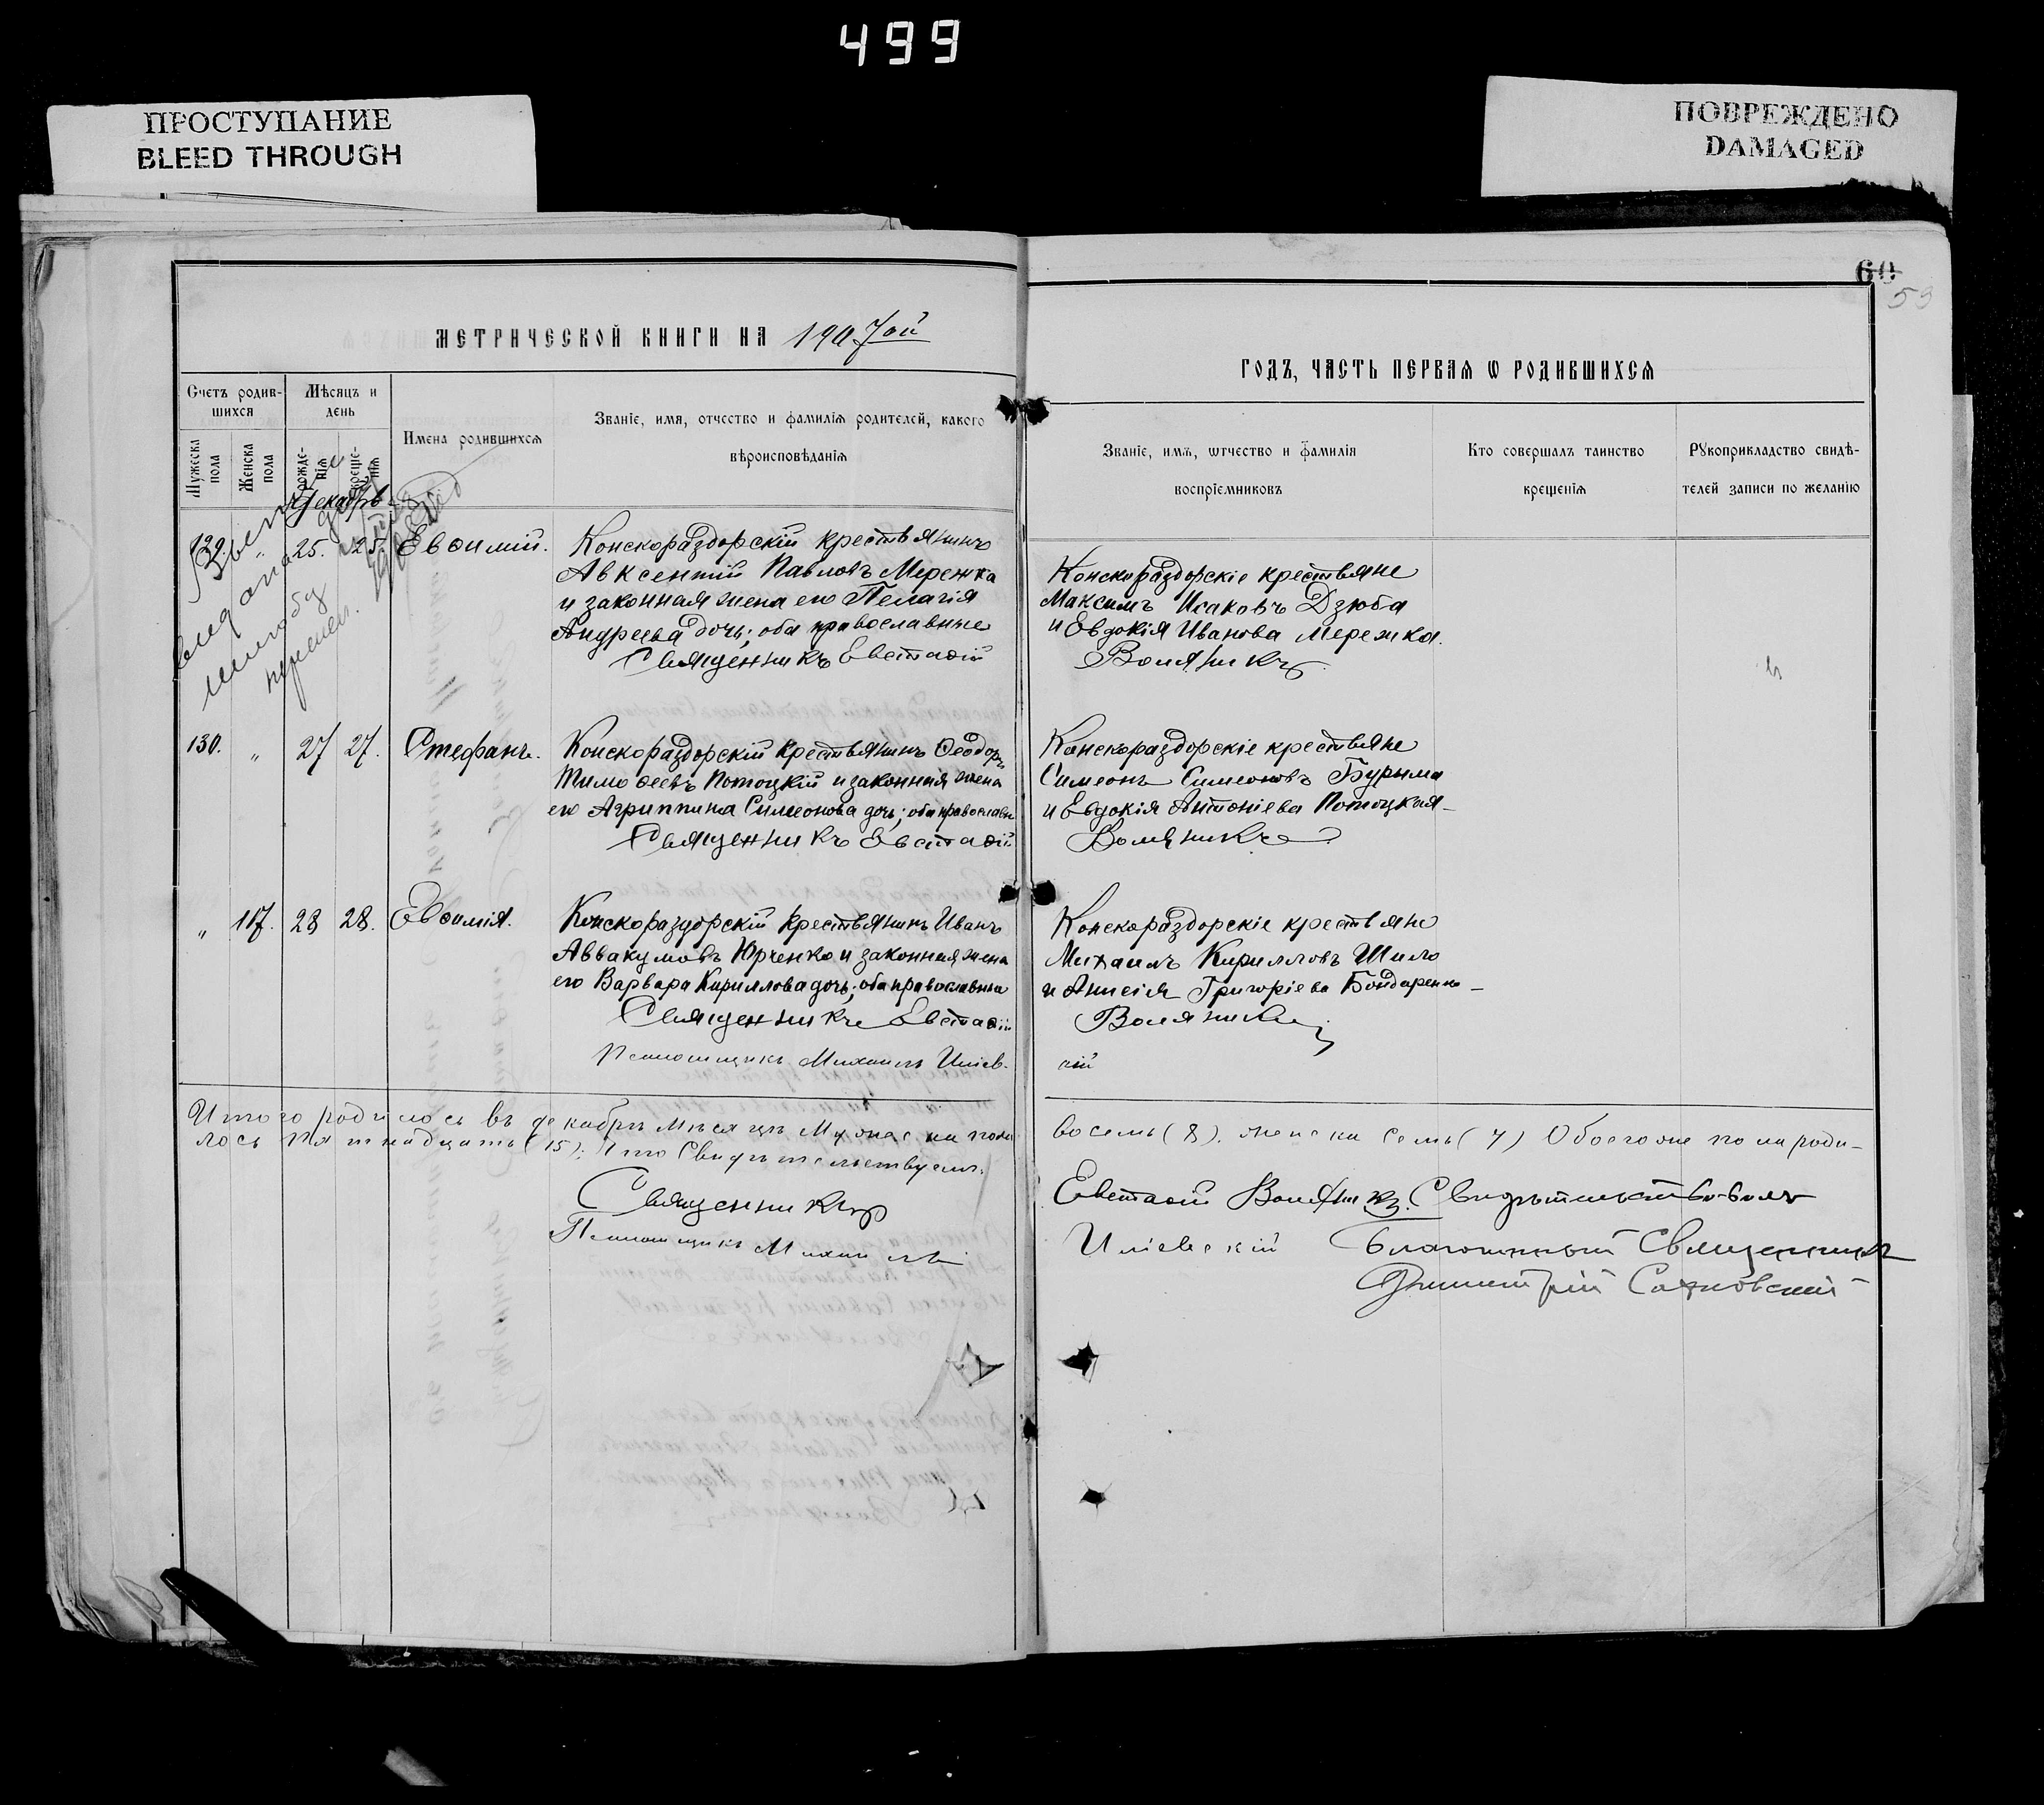 499
ПРОСТУПАНИЕ
BLEED THROUGH
ПОВРЕЖДЕНО
DAMAGED
60
59
МЕТРИЧЕСКОЙ КНИГИ НА 1907ой
ГОДЪ, ЧАСТЬ ПЕРВАЯ Ѡ РОДИВШИХСЯ
Счетъ родив-
шихся
Мѣсяцъ и
день
Мужеска
пола
Женска
пола
рожде-
нія
креще-
нія
Имена родившихся
Званіе, имя, отчество и фамилія родителей, какого
вѣроисповѣданія
Званіе, имя, ѿчество и фамилія
воспріемниковъ
Кто совершалъ таинство
крещенія
Рукоприкладство свидѣ-
телей записи по желанію
Декабрь
129. „ 25. 25. Евѳимій.
Конскораздорскій крестьянинъ
Авксентій Павловъ Мережка
и законная жена его Пелагія
Андреева дочь; оба православные
Священникъ Евстаѳій
Конскораздорскіе крестьяне
Максимъ Исаковъ Дзюба
и Евдокія Иванова Мережка.
Воляникъ
130. „ 27 27. Стефанъ.
Конскораздорскій крестьянинъ Ѳеодоръ
Тимоѳеевъ Потоцкій и законная жена
его Агриппина Симеонова дочь; оба православн
Священникъ Евстаѳій
Конскораздорскіе крестьяне
Симеонъ Симеоновъ Бурыма
и Евдокія Антоніева Потоцкая
Воляникъ
„ 117. 28 28. Евѳимія.
Конскораздорскій крестьянинъ Иванъ
Аввакумовъ Юрченко и законная жена
его Варвара Кириллова дочь; оба православные
Священникъ Евстаѳій
Псаломщикъ Михаилъ Иліев-
Конскораздорскіе крестьяне
Михаилъ Кирилловъ Шило
и Анисія Григоріева Бондаренко
Воляникъ
скій
Итого родилось въ декабрѣ мѣсяцѣ Мужеска пола
восемь (8). женска семь (7) Обоего же пола роди-
лось пятнадцать (15); Что Свидѣтельствуемъ:
Священникъ
Евстаѳій Воляникъ. Свидѣтельствовалъ
Псаломщикъ Михаилъ
Иліевскій Благочинный Священникъ
Димитрій Сахновскій